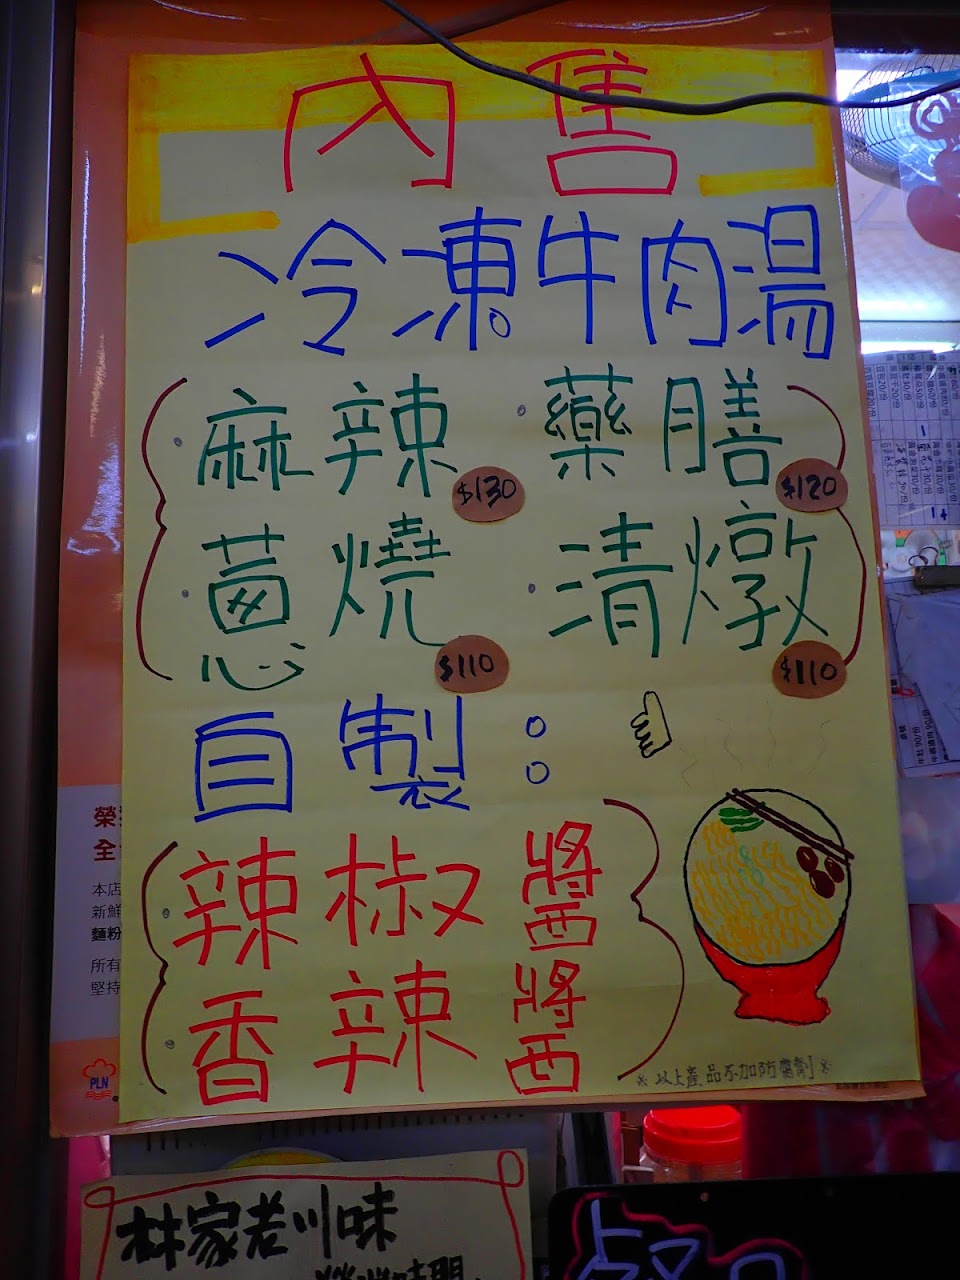 內售
冷凍牛肉湯
麻辣 $130 藥膳 $120
蔥燒 $110 清燉 $110
自製:
辣椒醬
香辣醬
※以上產品不加防腐劑※
全
本店
新鮮
麵粉
所有
堅持
PLN
林家老川味